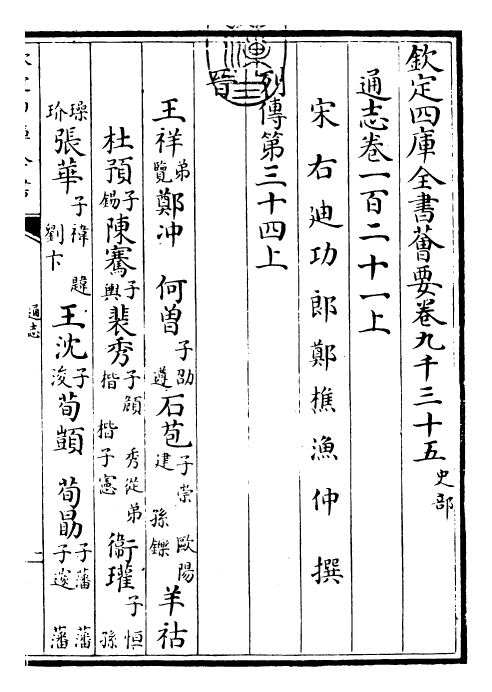 欽定四庫全書薈要卷九千三十五 史部
通志卷一百二十一上
宋右迪功郎鄭樵漁仲撰
列傳第三十四上
晉
王祥 弟覽 鄭沖 何曾 子劭 遵 石苞 子崇 歐陽建 孫鑠 羊祜
杜預 子錫 陳騫 子輿 裴秀 子頠 秀從弟楷 楷子憲 衛瓘 子恒 孫
璪 玠 張華 子禕 韙 劉卞 王沈 子浚 荀顗 荀勗 子藩 藩子邃 藩
通志
二